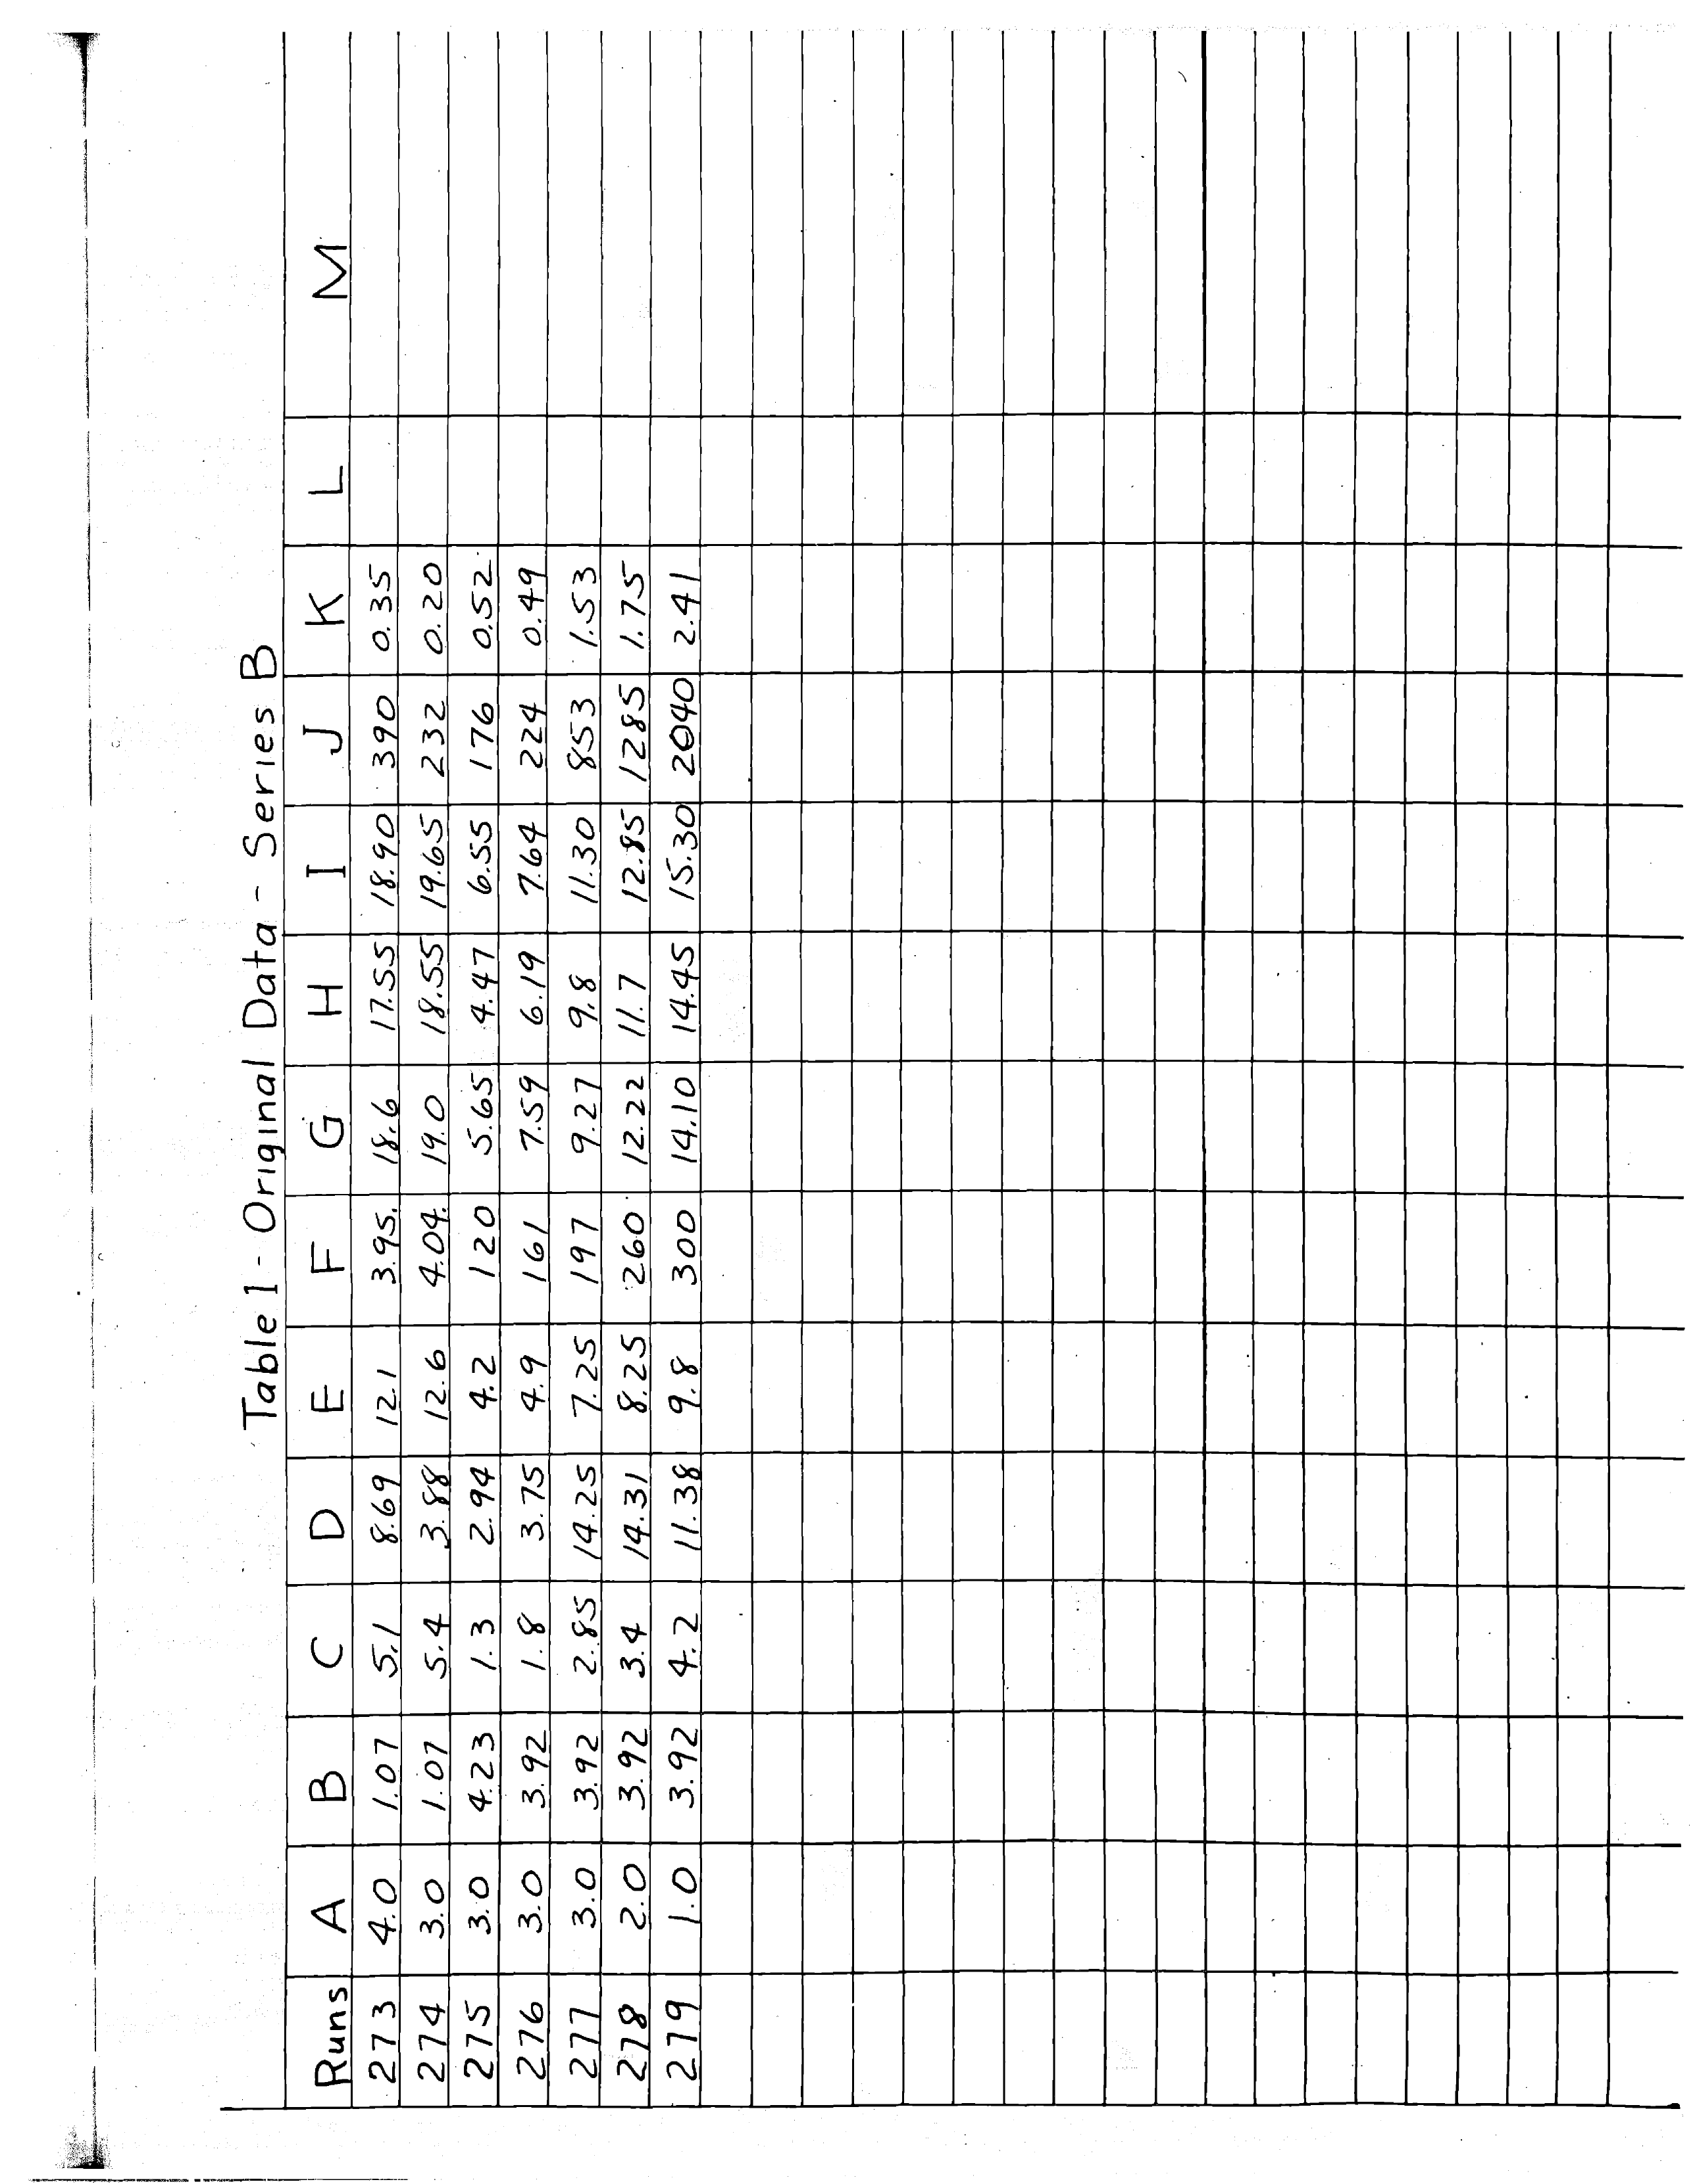 Table 1 - Original Data - Series B
Runs A B C D E F G H I J K L M
273 4.0 1.07 5.1 8.69 12.1 3.95. 18.6 17.55 18.90 390 0.35
274 3.0 1.07 5.4 3.88 12.6 4.04. 19.0 18.55 19.65 232 0.20
275 3.0 4.23 1.3 2.94 4.2 120 5.65 4.47 6.55 176 0.52
276 3.0 3.92 1.8 3.75 4.9 161 7.59 6.19 7.64 224 0.49
277 3.0 3.92 2.85 14.25 7.25 197 9.27 9.8 11.30 853 1.53
278 2.0 3.92 3.4 14.31 8.25 260 12.22 11.7 12.85 1285 1.75
279 1.0 3.92 4.2 11.38 9.8 300 14.10 14.45 15.30 2040 2.41